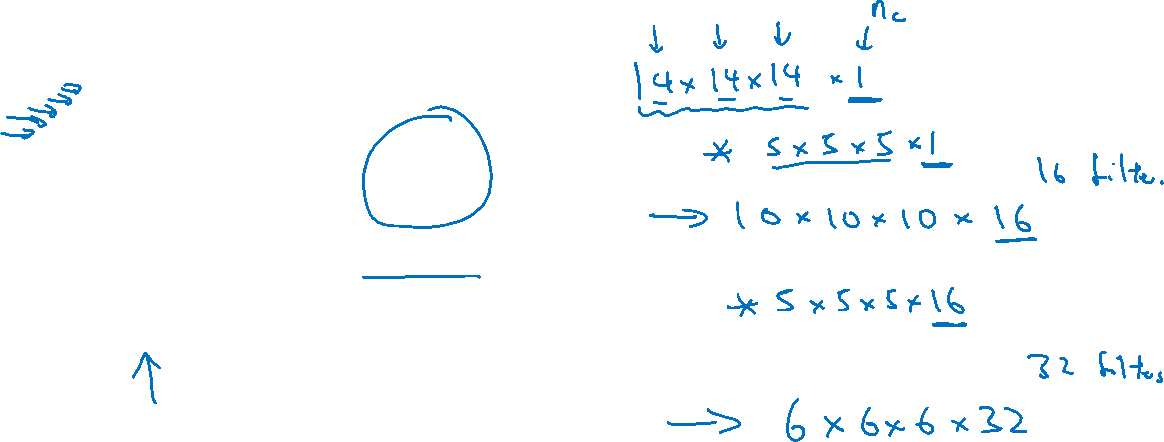 n_c
14 × 14 × 14 × 1
* 5 × 5 × 5 × 1
16 filte.
→ 10 × 10 × 10 × 16
* 5 × 5 × 5 × 16
32 filtes
→ 6 × 6 × 6 × 32